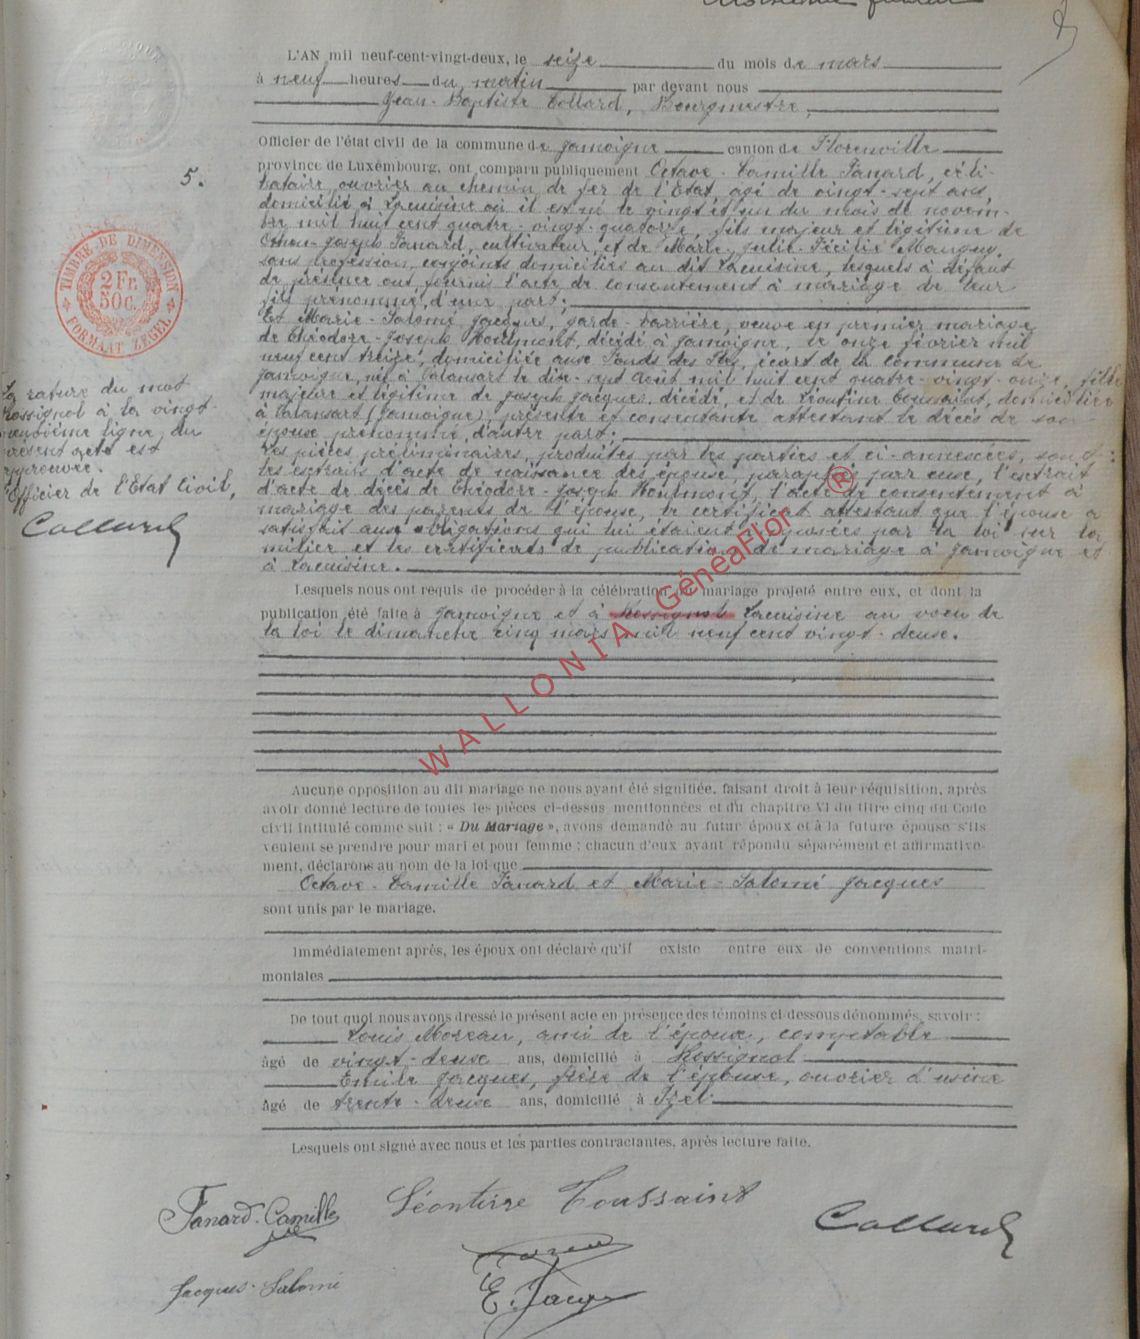 5.
L'AN mil neuf-cent-vingt-deux, le seize du mois de mars
à neuf heures du matin par devant nous
Jean-Baptiste Collard, Bourgmestre,
Officier de l'état civil de la commune de Jamoigne canton de Florenville
province de Luxembourg, ont comparu publiquement Octave-Camille Fanard, céli-
bataire, ouvrier au chemin de fer de l'Etat, agé de vingt-sept ans,
domicilié à Lacuisine où il est né le vingt et un du mois de novem-
bre mil huit cent quatre-vingt-quatorze, fils majeur et légitime de
Joseph Fanard, cultivateur, et de Marie-Julie-
sans profession, conjoints domiciliés au dit Lacuisine, lesquels à défaut
de présence ont fourni l'acte de consentement à mariage de leur
fils prénommé, d'une part;
Et Marie-Salomé Jacques, garde-barrière, veuve en premier mariage
de Théodore-Joseph décédé à Jamoigne, le onze février mil
neuf cent treize, domiciliée aux Fonds des Iles, écart de la commune de
Jamoigne, née à Valansart le dix-sept août mil huit cent quatre-vingt-onze, fille
majeure et légitime de Joseph Jacques, décédé, et de Toussaint, domiciliée
à Valansart (Jamoigne), présente et consentante attestant le décès de son
épouse prénommé, d'autre part;
Les pièces préliminaires, produites par les parties et ci-annexées, sont:
les extraits d'acte de naissance des épouse, paraphé par eux, l'extrait
d'acte de décès de Théodore-Joseph l'acte de consentement à
mariage des parents de l'épouse, le certificat attestant que l'épouse a
satisfait aux obligations qui lui étaient imposées par la loi sur la
milice et les certificats de publication de mariage à Jamoigne et
à Lacuisine.
TIMBRE DE DIMENSION
2 Fr.
50C.
FORMAAT ZEGEL
La rature du mot
Rossignol à la vingt-
neuvième ligne du
présent acte est
approuvée.
L'Officier de l'Etat Civil,
Collard
Lesquels nous ont requis de procéder à la célébration du mariage projeté entre eux, et dont la
publication été faite à Jamoigne et à Rossignol Lacuisine au voeu de
la loi le dimanche cinq mars mil neuf cent vingt-deux.
WALLONIA GénéaFlor ®
Aucune opposition au dit mariage ne nous ayant été signifiée, faisant droit à leur réquisition, après
avoir donné lecture de toutes les pièces ci-dessus mentionnées et du chapitre VI du titre cinq du Code
civil intitulé comme suit : « Du Mariage », avons demandé au futur époux et à la future épouse s'ils
veulent se prendre pour mari et pour femme ; chacun d'eux ayant répondu séparément et affirmative-
ment, déclarons au nom de la loi que
Octave-Camille Fanard et Marie-Salomé Jacques
sont unis par le mariage.
Immédiatement après, les époux ont déclaré qu'il existe entre eux de conventions matri-
moniales
De tout quoi nous avons dressé le présent acte en présence des témoins ci-dessous dénommés, savoir :
Louis Moreau, ami de l'époux, comptable
âgé de vingt-deux ans, domicilié à Rossignol
Emile Jacques, frère de l'épouse, ouvrier d'usine
âgé de trente-deux ans, domicilié à Izel
Lesquels ont signé avec nous et les parties contractantes, après lecture faite.
Fanard-Camille
Léontine Toussaint
Collard
Jacques-Salomé
E. Jacques